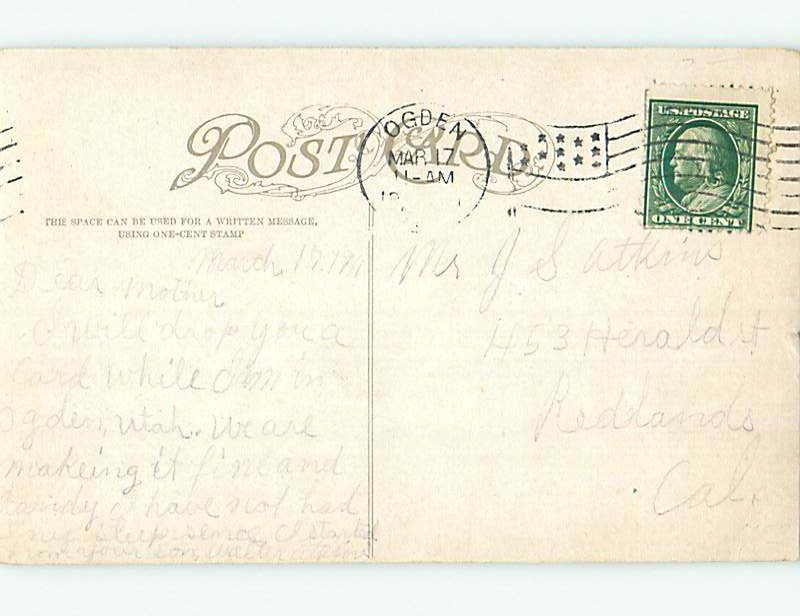 POST CARD
OGDEN
MAR 17
11-AM
U.S. POSTAGE
ONE CENT
THIS SPACE CAN BE USED FOR A WRITTEN MESSAGE,
USING ONE-CENT STAMP
March, 17. 1911
Dear Mother.
I will drop you a
Card while I am in
Ogden, Utah. We are
makeing it fine and
dandy I have not had
my sleep sence I started
from your son, Walter Atkins
Mr J S Atkins
453 Herald st
Redlands
Cal.